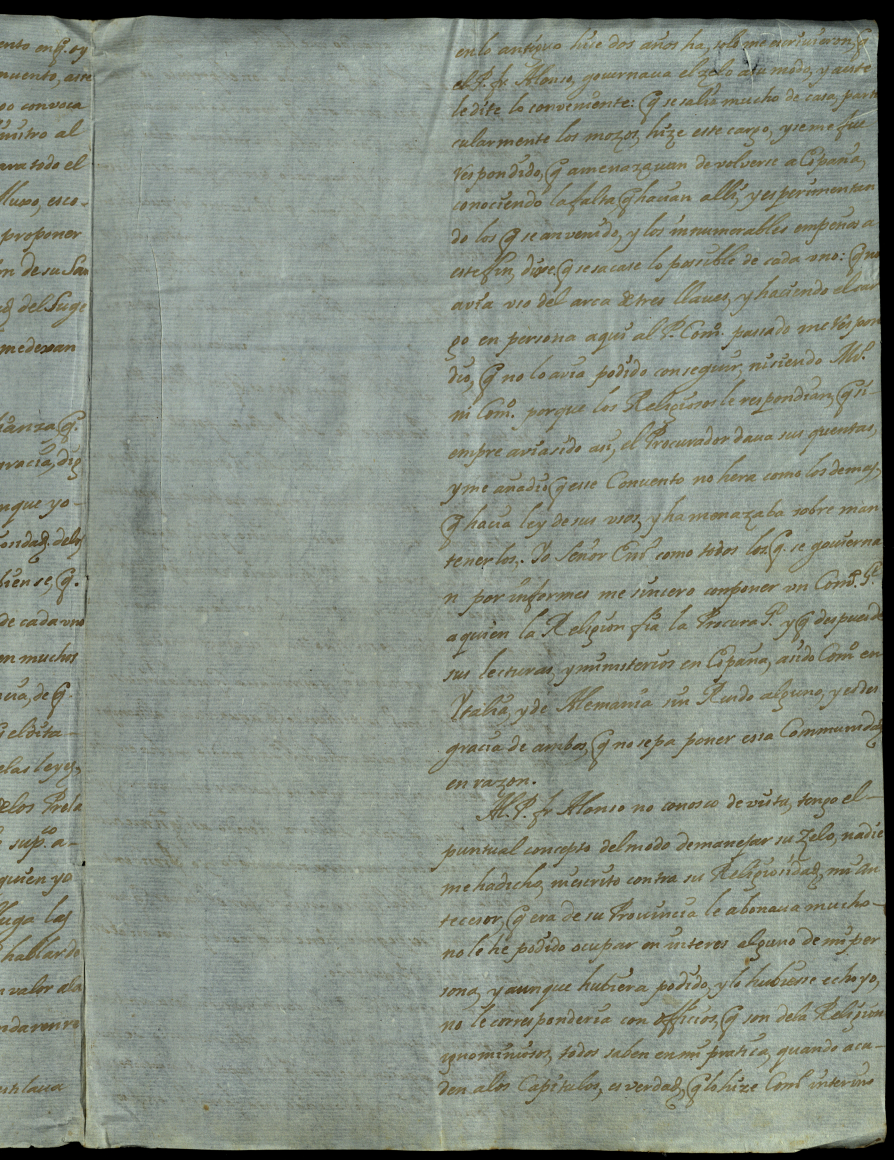 ento en q̃. oy
nvento, este
po convoca
nistro al
ara todo el
Muro, esco-
proponer
on de su San
d del Suge
me dexan
ianza q̃.
gracia, dig
nque yo-
osidad. delos
bien se, q̃.
de cada uno
en muchos
cia, de q̃.
el dita-
elas leyes,
delos Prela
sup.co a-
quien yo
luga las
hallando
n valor ala
nda ron ro
en lo antiguo hise dos años ha, solo me avisaron, q̃
el P. fr. Alonso, governava el zelo a su modo, y a este
le dite lo conveniente: q̃ se salia mucho de casa, parti
cularmente los mozos, hize este cargo, y se me fue
respondido, q̃ amenazavan de volverse a España,
conociendo la falta q̃ havian alli, y esperimentan
do los q̃ se an venido, y los innumerables empeños a
este fin, dixe, q̃ se sacase lo possible de cada uno: q̃ no
avia uso del arca de tres llaves, y haciendo el car
go en persona aqui al P. Com.o passado me respon
dio, q̃ no lo avia podido conseguir, ni siendo Mro.
ni Com.o porque los Religiosos le respondian, q̃ si-
empre avia sido asi, el Procurador dava sus quentas,
y me añadio q̃ esse Convento no hera como los demas,
q̃ hacia ley de sus usos, y ha menazaba sobre man
tenerlos. Yo Señor Exmo como todos los q̃. se govierna
n por informes me sincero con poner un Com.o G.l
a quien la Religion fia la Procura G.l y q̃ despues de
sus lecturas, y ministerios en España, a sido Com.o en
Ytalia, y de Alemania sin Ruido alguno, y es des
gracia de ambos, q̃ no sepa poner essa Communidad
en razon.
Al P. fr. Alonso no conosco de vista, tengo el-
puntual concepto del modo de manejar su Zelo, nadie
me ha dicho, ni escrito contra su Religiosidad, mi an
tecesor, q̃ era de su Provincia le abonava mucho-
no le hè podido ocupar en interes alguno de mi per
sona, y aunque hubiera podido, y lo hubiesse echo yo,
no le corresponderia con officios, q̃ son dela Religion
ignominiosos, todos saben en mi pratica, quando acu-
den alos Capitulos, es verdad, q̃ lo hize Com.o interino